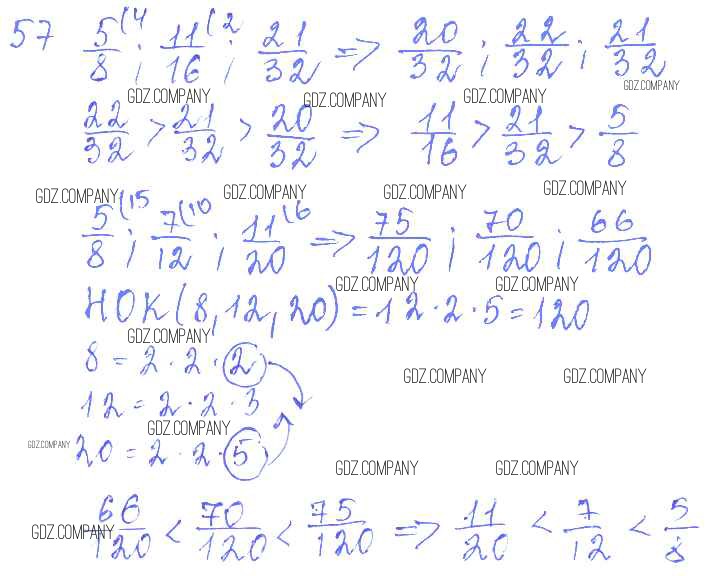 57 5/8 (4 ; 11/16 (2 ; 21/32 => 20/32 ; 22/32 ; 21/32
GDZ.COMPANY GDZ.COMPANY GDZ.COMPANY GDZ.COMPANY
22/32 > 21/32 > 20/32 => 11/16 > 21/32 > 5/8
GDZ.COMPANY GDZ.COMPANY GDZ.COMPANY GDZ.COMPANY
5/8 (15 ; 7/12 (10 ; 11/20 (6 => 75/120 ; 70/120 ; 66/120
GDZ.COMPANY GDZ.COMPANY
НОК(8,12,20) = 12·2·5 = 120
GDZ.COMPANY
8 = 2·2·2
GDZ.COMPANY GDZ.COMPANY
12 = 2·2·3
GDZ.COMPANY
GDZ.COMPANY 20 = 2·2·5
GDZ.COMPANY GDZ.COMPANY
GDZ.COMPANY 66/120 < 70/120 < 75/120 => 11/20 < 7/12 < 5/8